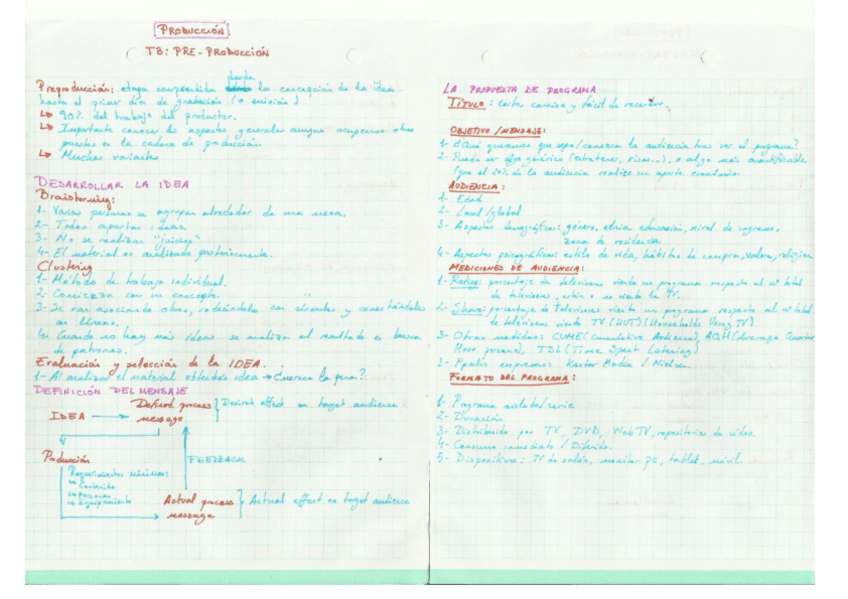 PRODUCCIÓN
T3: PRE-PRODUCCIÓN
Preproducción: etapa comprendida desde la concepción de la idea
hasta el primer día de grabación (o emisión)
↳ 90% del trabajo del productor.
↳ Importante conocer los aspectos generales aunque ocupemos otros
puestos en la cadena de producción
↳ Muchas variantes
DESARROLLAR LA IDEA
Brainstorming:
1- Varias personas se agrupan alrededor de una mesa.
2- Todos aportan ideas.
3- No se realizan "juicios"
4- El material es analizado posteriormente.
Clustering
1- Método de trabajo individual.
2- Comienza con un concepto.
3- Se van asociando otros, rodeándolos con círculos y conectándolos
con líneas.
4- Cuando no hay más ideas se analiza el resultado en busca
de patrones.
Evaluación y selección de la IDEA.
1- Al analizar el material obtenido idea → ¿Merece la pena?
DEFINICIÓN DEL MENSAJE
IDEA → Defined process message } Desired effect on target audience
Producción
FEEDBACK
Requerimientos mínimos:
↳ Contenido
↳ Personas
↳ Equipamiento
Actual process message } Actual effect on target audience
LA PROPUESTA DE PROGRAMA
TÍTULO: corto, conciso y fácil de recordar.
OBJETIVO/MENSAJE:
1- ¿Qué queremos que sepa/conozca la audiencia tras ver el programa?
2- Puede ser algo genérico (entretener, risa...), o algo más cuantificable
(que el 20% de la audiencia realice un aporte económico)
AUDIENCIA:
1- Edad
2- Local/global
3- Aspectos demográficos: género, etnia, educación, nivel de ingresos,
zona de residencia
4- Aspectos psicográficos: estilo de vida, hábitos de compra, valores, religión
MEDICIONES DE AUDIENCIA:
1- Rating: porcentaje de televisores viendo un programa respecto al nº total
de televisores, estén o no viendo la TV.
2- Share: porcentaje de Televisores viendo un programa respecto al nº total
de televisores viendo TV (HUT) (Households Using TV)
3- Otras medidas: CUME (Cumulative Audience), AQH (Average Quarter
Hour persons), TSL (Time Spent Listening)
3- Ppales empresas: Kantar Media / Nielsen
FORMATO DEL PROGRAMA:
1- Programa aislado/serie
2- Duración
3- Distribuido por TV, DVD, WebTV, repositorios de vídeo.
4- Consumo inmediato / Diferido.
5- Dispositivo: TV de salón, monitor PC, tablet, móvil.